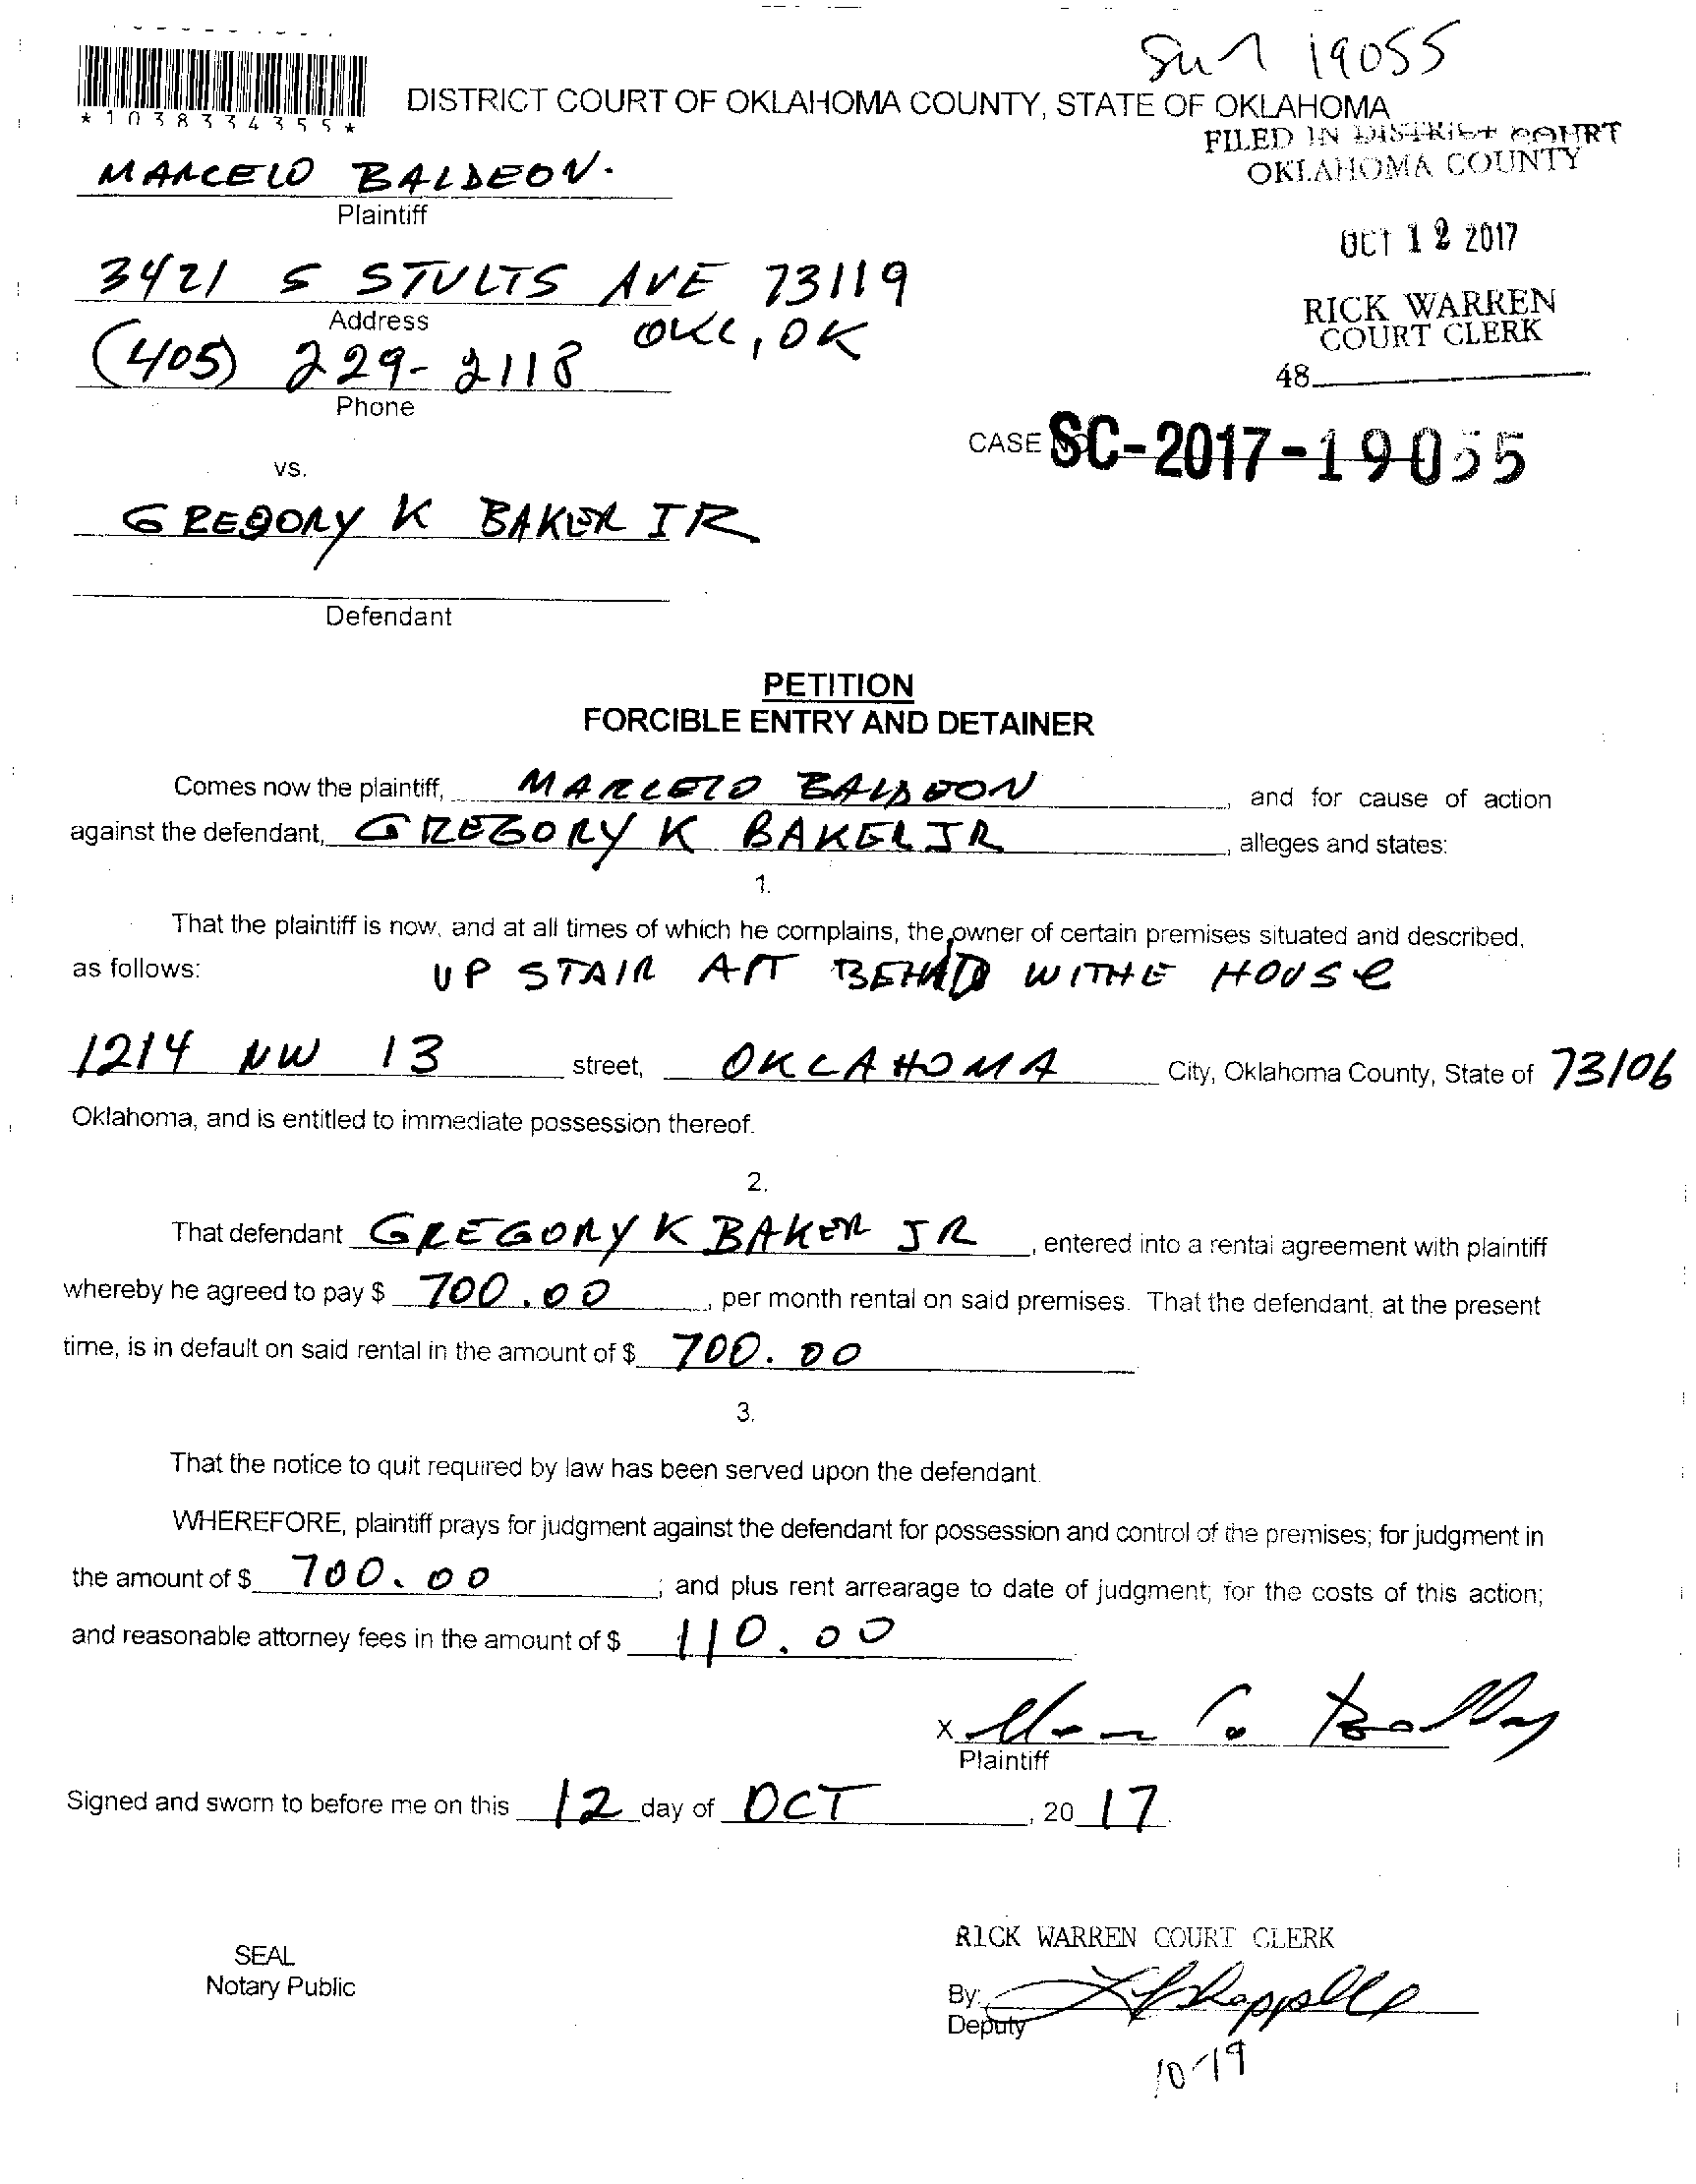 19055
*1038334355*
DISTRICT COURT OF OKLAHOMA COUNTY, STATE OF OKLAHOMA
FILED IN DISTRICT COURT
OKLAHOMA COUNTY
MARCELO BALDEON.
Plaintiff
OCT 12 2017
3421 S STULTS AVE 73119
Address
OKC, OK
RICK WARREN
COURT CLERK
(405) 229-2118
48
Phone
CASE NO SC-2017-19055
vs.
GREGORY K BAKER JR
Defendant
PETITION
FORCIBLE ENTRY AND DETAINER
Comes now the plaintiff, MARCELO BALDEON, and for cause of action
against the defendant, GREGORY K BAKER JR, alleges and states:
1.
That the plaintiff is now, and at all times of which he complains, the owner of certain premises situated and described,
as follows: UP STAIR APT WITHE HOUSE
1214 NW 13 street, OKLAHOMA City, Oklahoma County, State of 73106
Oklahoma, and is entitled to immediate possession thereof.
2.
That defendant GREGORY K BAKER JR, entered into a rental agreement with plaintiff
whereby he agreed to pay $ 700.00, per month rental on said premises. That the defendant, at the present
time, is in default on said rental in the amount of $ 700.00
3.
That the notice to quit required by law has been served upon the defendant.
WHEREFORE, plaintiff prays for judgment against the defendant for possession and control of the premises; for judgment in
the amount of $ 700.00; and plus rent arrearage to date of judgment; for the costs of this action;
and reasonable attorney fees in the amount of $ 110.00
X
Plaintiff
Signed and sworn to before me on this 12 day of OCT, 20 17.
RICK WARREN COURT CLERK
SEAL
Notary Public
By:
Deputy
10-19